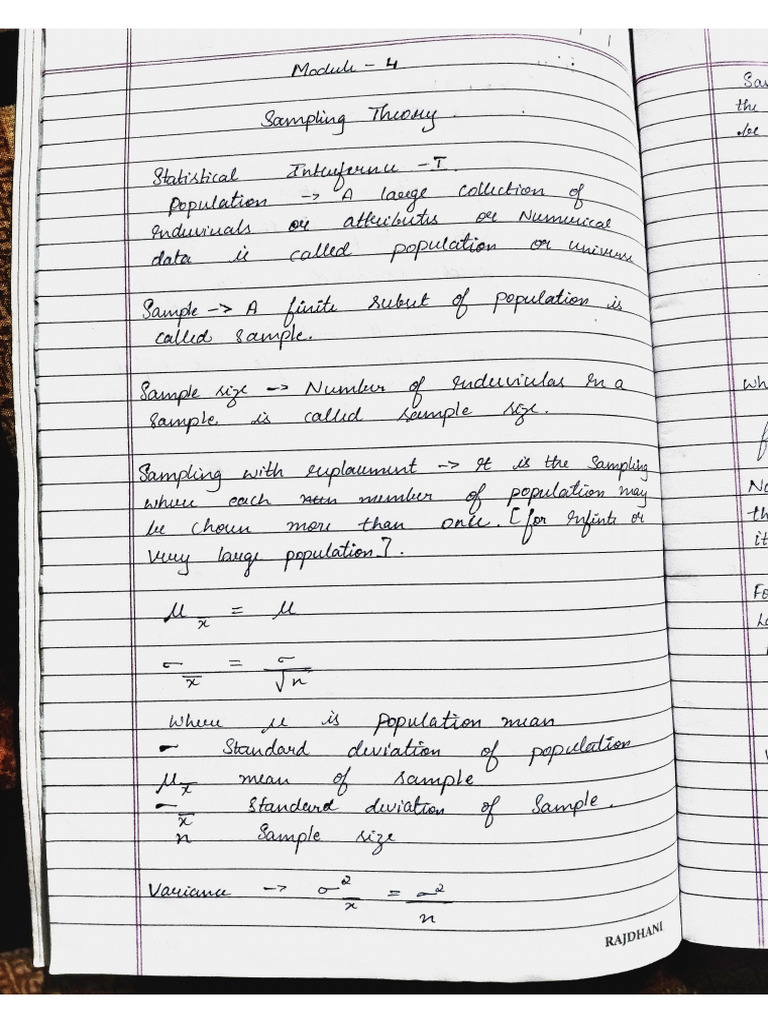 Module - 4
Sampling Theory.
Statistical Interference - I.
Population -> A large collection of
induviuals or attributes or Numerical
data is called population or universe
Sample -> A finite subset of population is
called sample.
Sample size -> Number of induviculas in a
sample. is called sample size.
Sampling with replacement -> It is the sampling
where each member of population may
be chosen more than once. [for infinite or
very large population].
μ_x̄ = μ
σ_x̄ = σ/√n
where μ is population mean
σ standard deviation of population
μ_x̄ mean of sample
σ_x̄ standard deviation of Sample.
n Sample size
Variance -> σ²_x̄ = σ²/n
RAJDHANI
Sa
the
be
wh
f
No
th
it
Fo